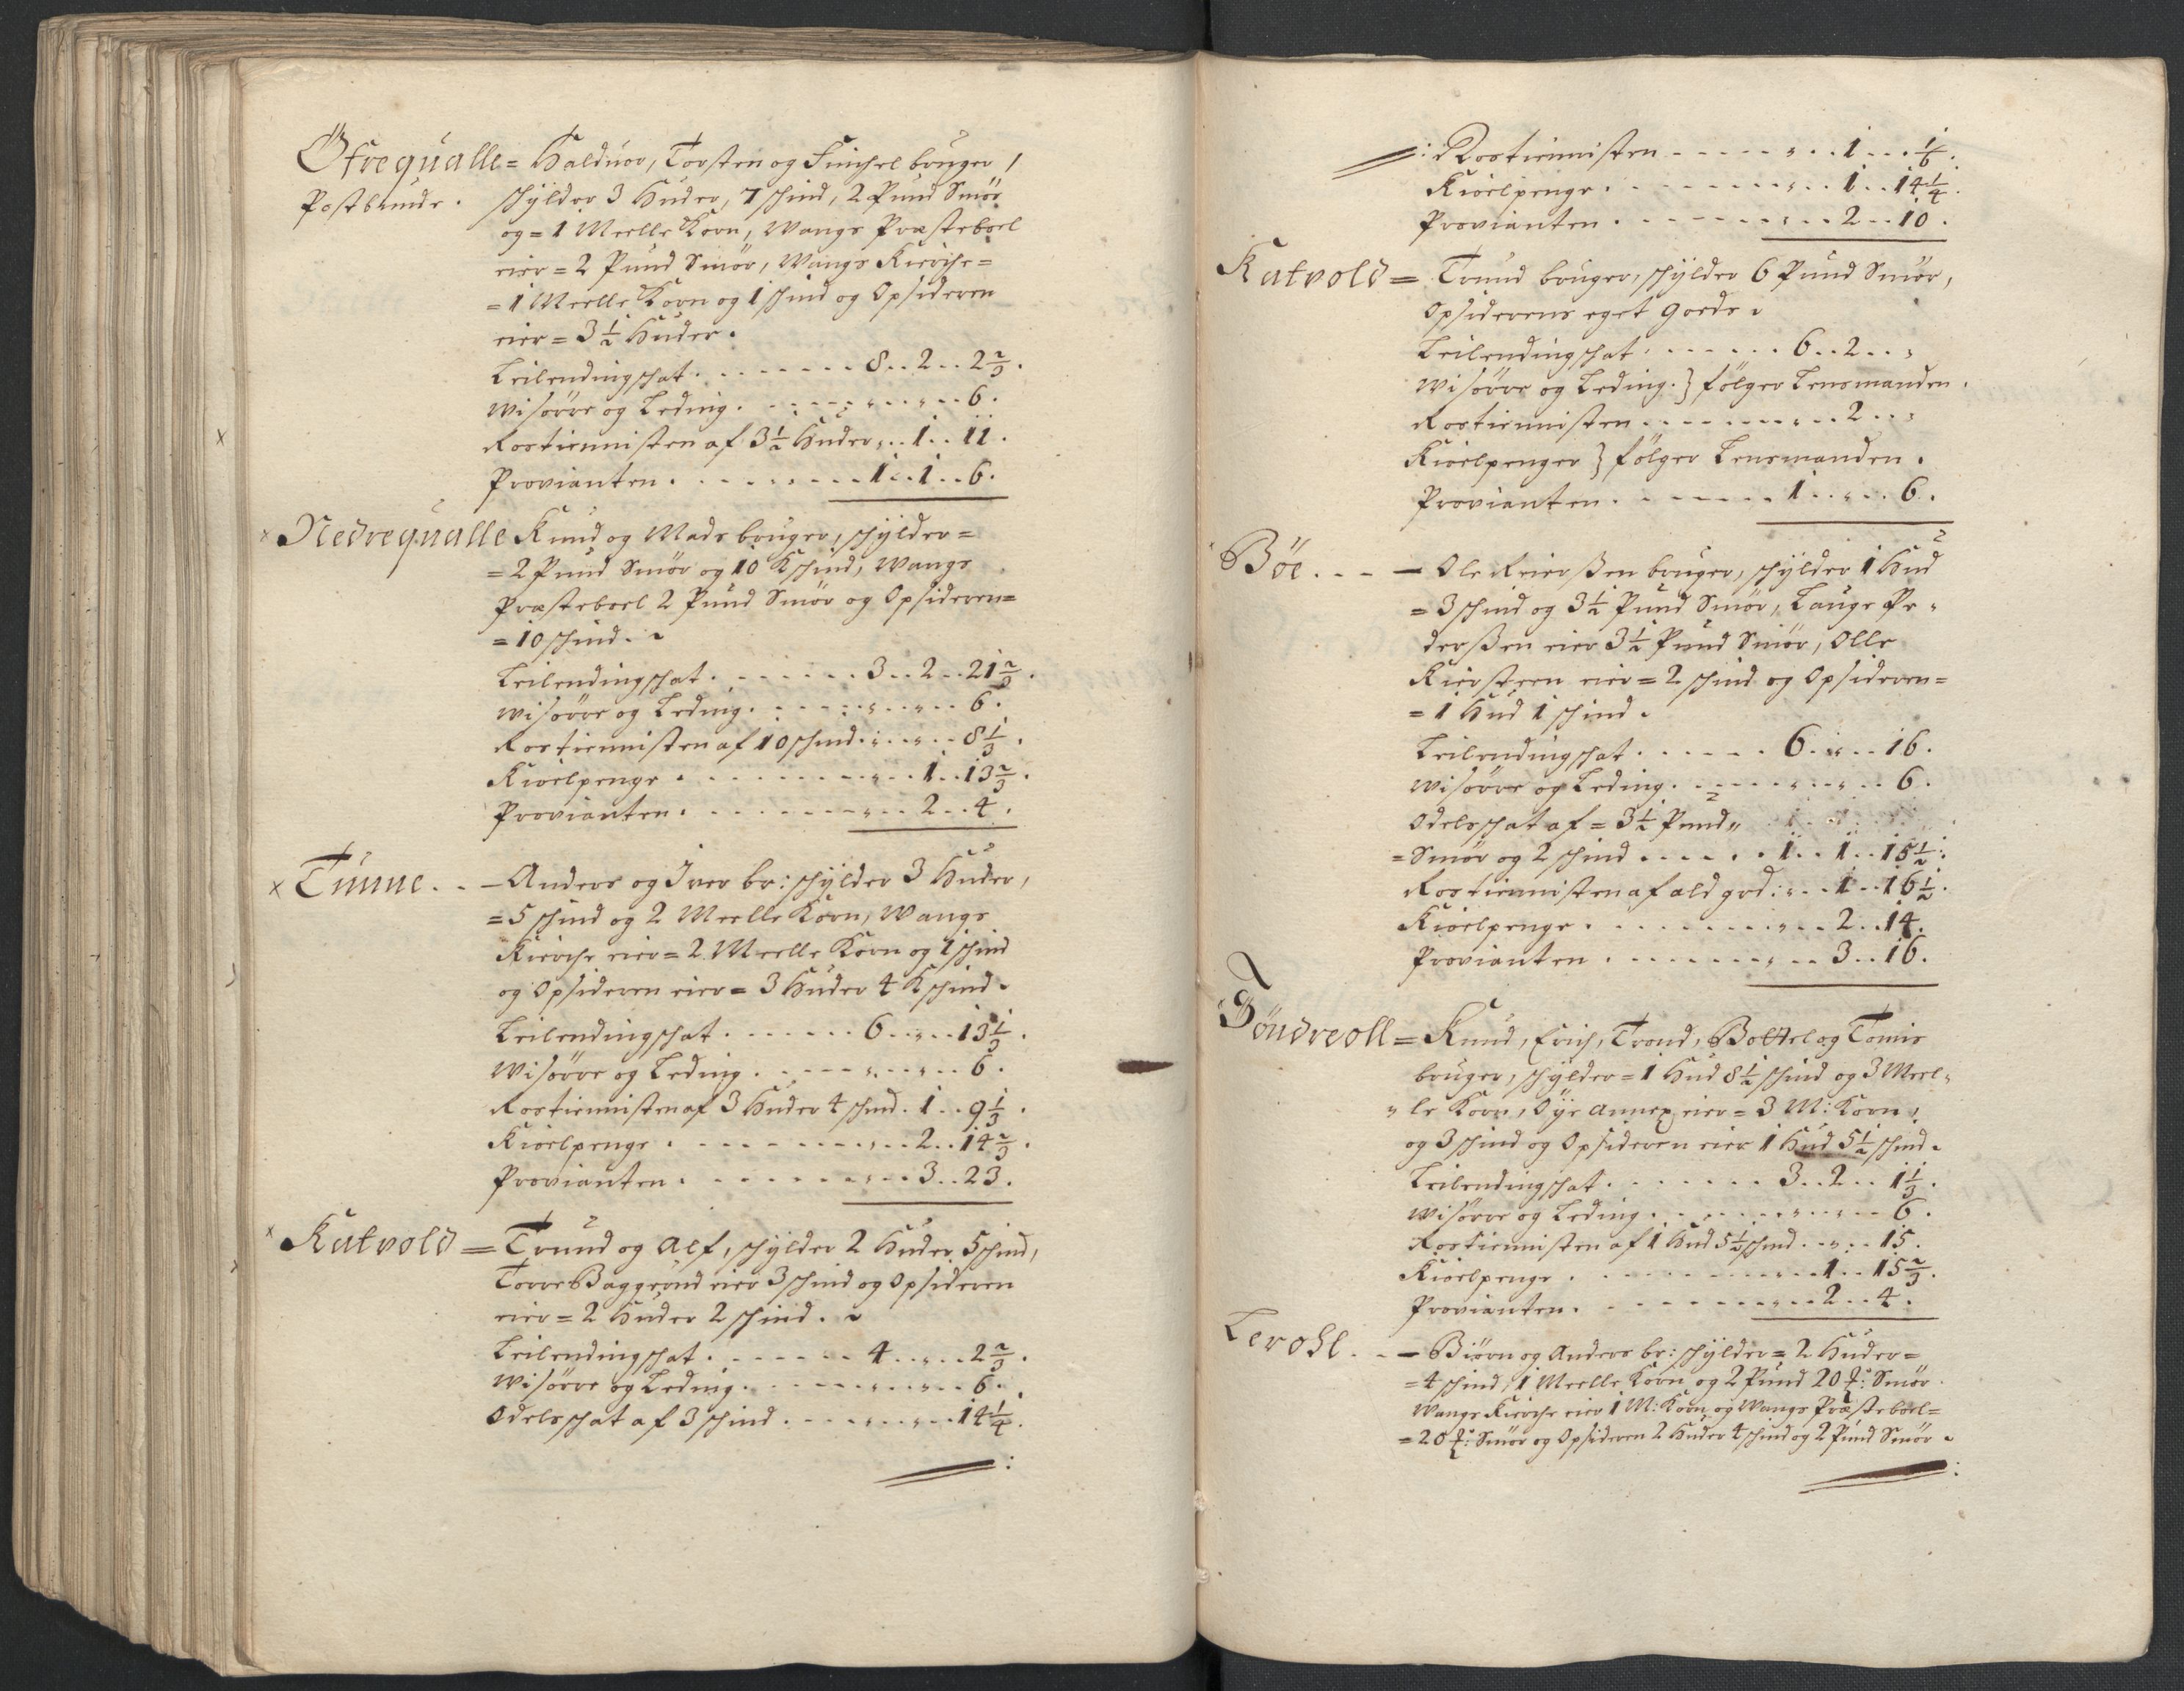 Öfrequalle = Halduor, Torsten og Finchel bruger /
Postbunde . schylder 3 Huder, 7 schind, 2 Pund Smör
og = 1 Meelle Korn, Wangs Præsteboel
eier = 2 Pund Smör, Wangs Kierche =
= 1 Meelle Korn og 1 schind og Opsideren
eier = 3 1/2 Huder .
Leilendingschat . . . . . . . . 8 . . 2 . . 2 2/3 .
Wisörre og Leding . . . . . " . . " . . 6 .
Rostiennisten af 3 1/2 Huder " . . 1 . . 11 .
Provianten . . . . . . . . . 1 . . 1 . . 6 .
× Nedrequalle Knud og Mads bruger, schylder =
= 2 Pund Smör og 10 Kschind, Wangs
Præsteboel 2 Pund Smör og Opsideren =
= 10 schind .
Leilendingschat . . . . . . . 3 . . 2 . . 21 2/3 .
Wisörre og Leding . . . . . " . . " . . 6 .
Rostiennisten af 10 schind . " . . " . . 8 1/3 .
Kioelpenge . . . . . . . . . " . . 1 . . 13 2/3 .
Provianten . . . . . . . . " . . 2 . . 4 .
× Tunne . . — Anders og Iver br: schylder 3 Huder,
= 5 schind og 2 Meelle Korn, Wangs
Kierche eier = 2 Meelle Korn og 1 schind
og Opsideren eier = 3 Huder 4 Kschind .
Leilendingschat . . . . . . . 6 . . " . . 13 1/3 .
Wisörre og Leding . . . . . " . . " . . 6 .
Rostiennisten af 3 Huder 4 schind . 1 . . 9 1/3 .
Kioelpenge . . . . . . . . . " . . 2 . . 14 2/3 .
Provianten . . . . . . . . " . . 3 . . 23 .
× Katvold = Trund og Alf, schylder 2 Huder 5 schind,
Torre Baggerud eier 3 schind og Opsideren
eier = 2 Huder 2 schind .
Leilendingschat . . . . . . . 4 . . " . . 2 2/3 .
Wisörre og Leding . . . . . " . . " . . 6 .
Odelsschat af 3 schind . . . . " . . " . . 14 1/4 .
: Rostiennisten . . . . . " . . 1 . . 1/6 .
Kioelpenge . . . . . . . . " . . 1 . . 14 1/4 .
Provianten . . . . . . . " . . 2 . . 10 .
Katvold = Trund bruger, schylder 6 Pund Smör,
Opsiderens eget Goeds .
Leilendingschat . . . . . . 6 . . 2 . . "
Wisörre og Leding . } fölger Lensmanden .
Rostiennisten . . . . . . . . " . . 2 . . "
Kioelpenger } fölger Lensmanden .
Provianten . . . . . . . 1 . . " . . 6 .
Böe . . . — Ole Reierßen bruger, schylder 1 Hud
= 3 schind og 3 1/2 Pund Smör, Lauge Pe"
derßen eier 3 1/2 Pund Smör, Olle
Kiersteen eier = 2 schind og Opsideren =
= 1 Hud 1 schind .
Leilendingschat . . . . . . 6 . . " . . 16 .
Wisörre og Leding . . . . . " . . " . . 6 .
Odelsschat af = 3 1/2 Pund "
= Smör og 2 schind . . . . . 1 . . 1 . . 15 1/2 .
Rostiennisten af ald grd: " . . 1 . . 16 1/2 .
Kioelpenge . . . . . . . . " . . 2 . . 14 .
Provianten . . . . . . . " . . 3 . . 16 .
Söndreoll = Knud, Erich, Trond, Bottel og Tomis
bruger, schylder = 1 Hud 8 1/2 schind og 3 Meel"
" le Korn, Öye annex eier = 3 M: Korn,
og 3 schind og Opsideren eier 1 Hud 5 1/2 schind .
Leilendingschat . . . . . . . 3 . . 2 . . 1 1/3 .
Wisörre og Leding . . . . . . " . . " . . 6 .
Rostiennisten af 1 Hud 5 1/2 schind . . " . . 15 .
Kioelpenge . . . . . . . . . " . . 1 . . 15 2/3 .
Provianten . . . . . . . . " . . 2 . . 4 .
Lerohl . . — Biörn og Anders br: schylder = 2 Huder =
= 4 schind, 1 Meelle Korn og 2 Pund 20 ℔: Smör
Wangs Kierche eier 1 M: Korn og Wangs Præsteboel =
= 20 ℔: Smör og Opsideren 2 Huder 4 schind og 2 Pund Smör .